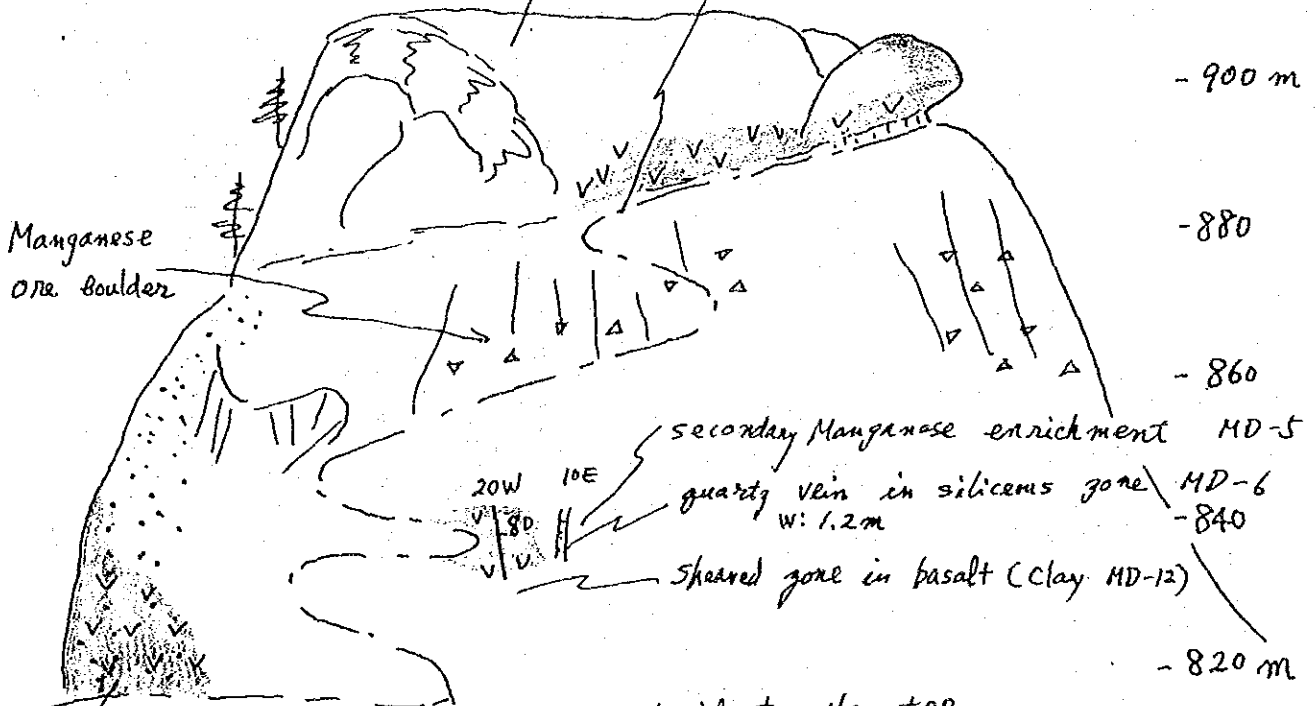 - 900 m
- 880
Manganese
ore boulder
- 860
secondary Manganese enrichment MD-5
quartz vein in siliceous zone MD-6
w: 1.2 m
- 840
20W 10E
80
Sheared zone in basalt (Clay MD-12)
- 820 m